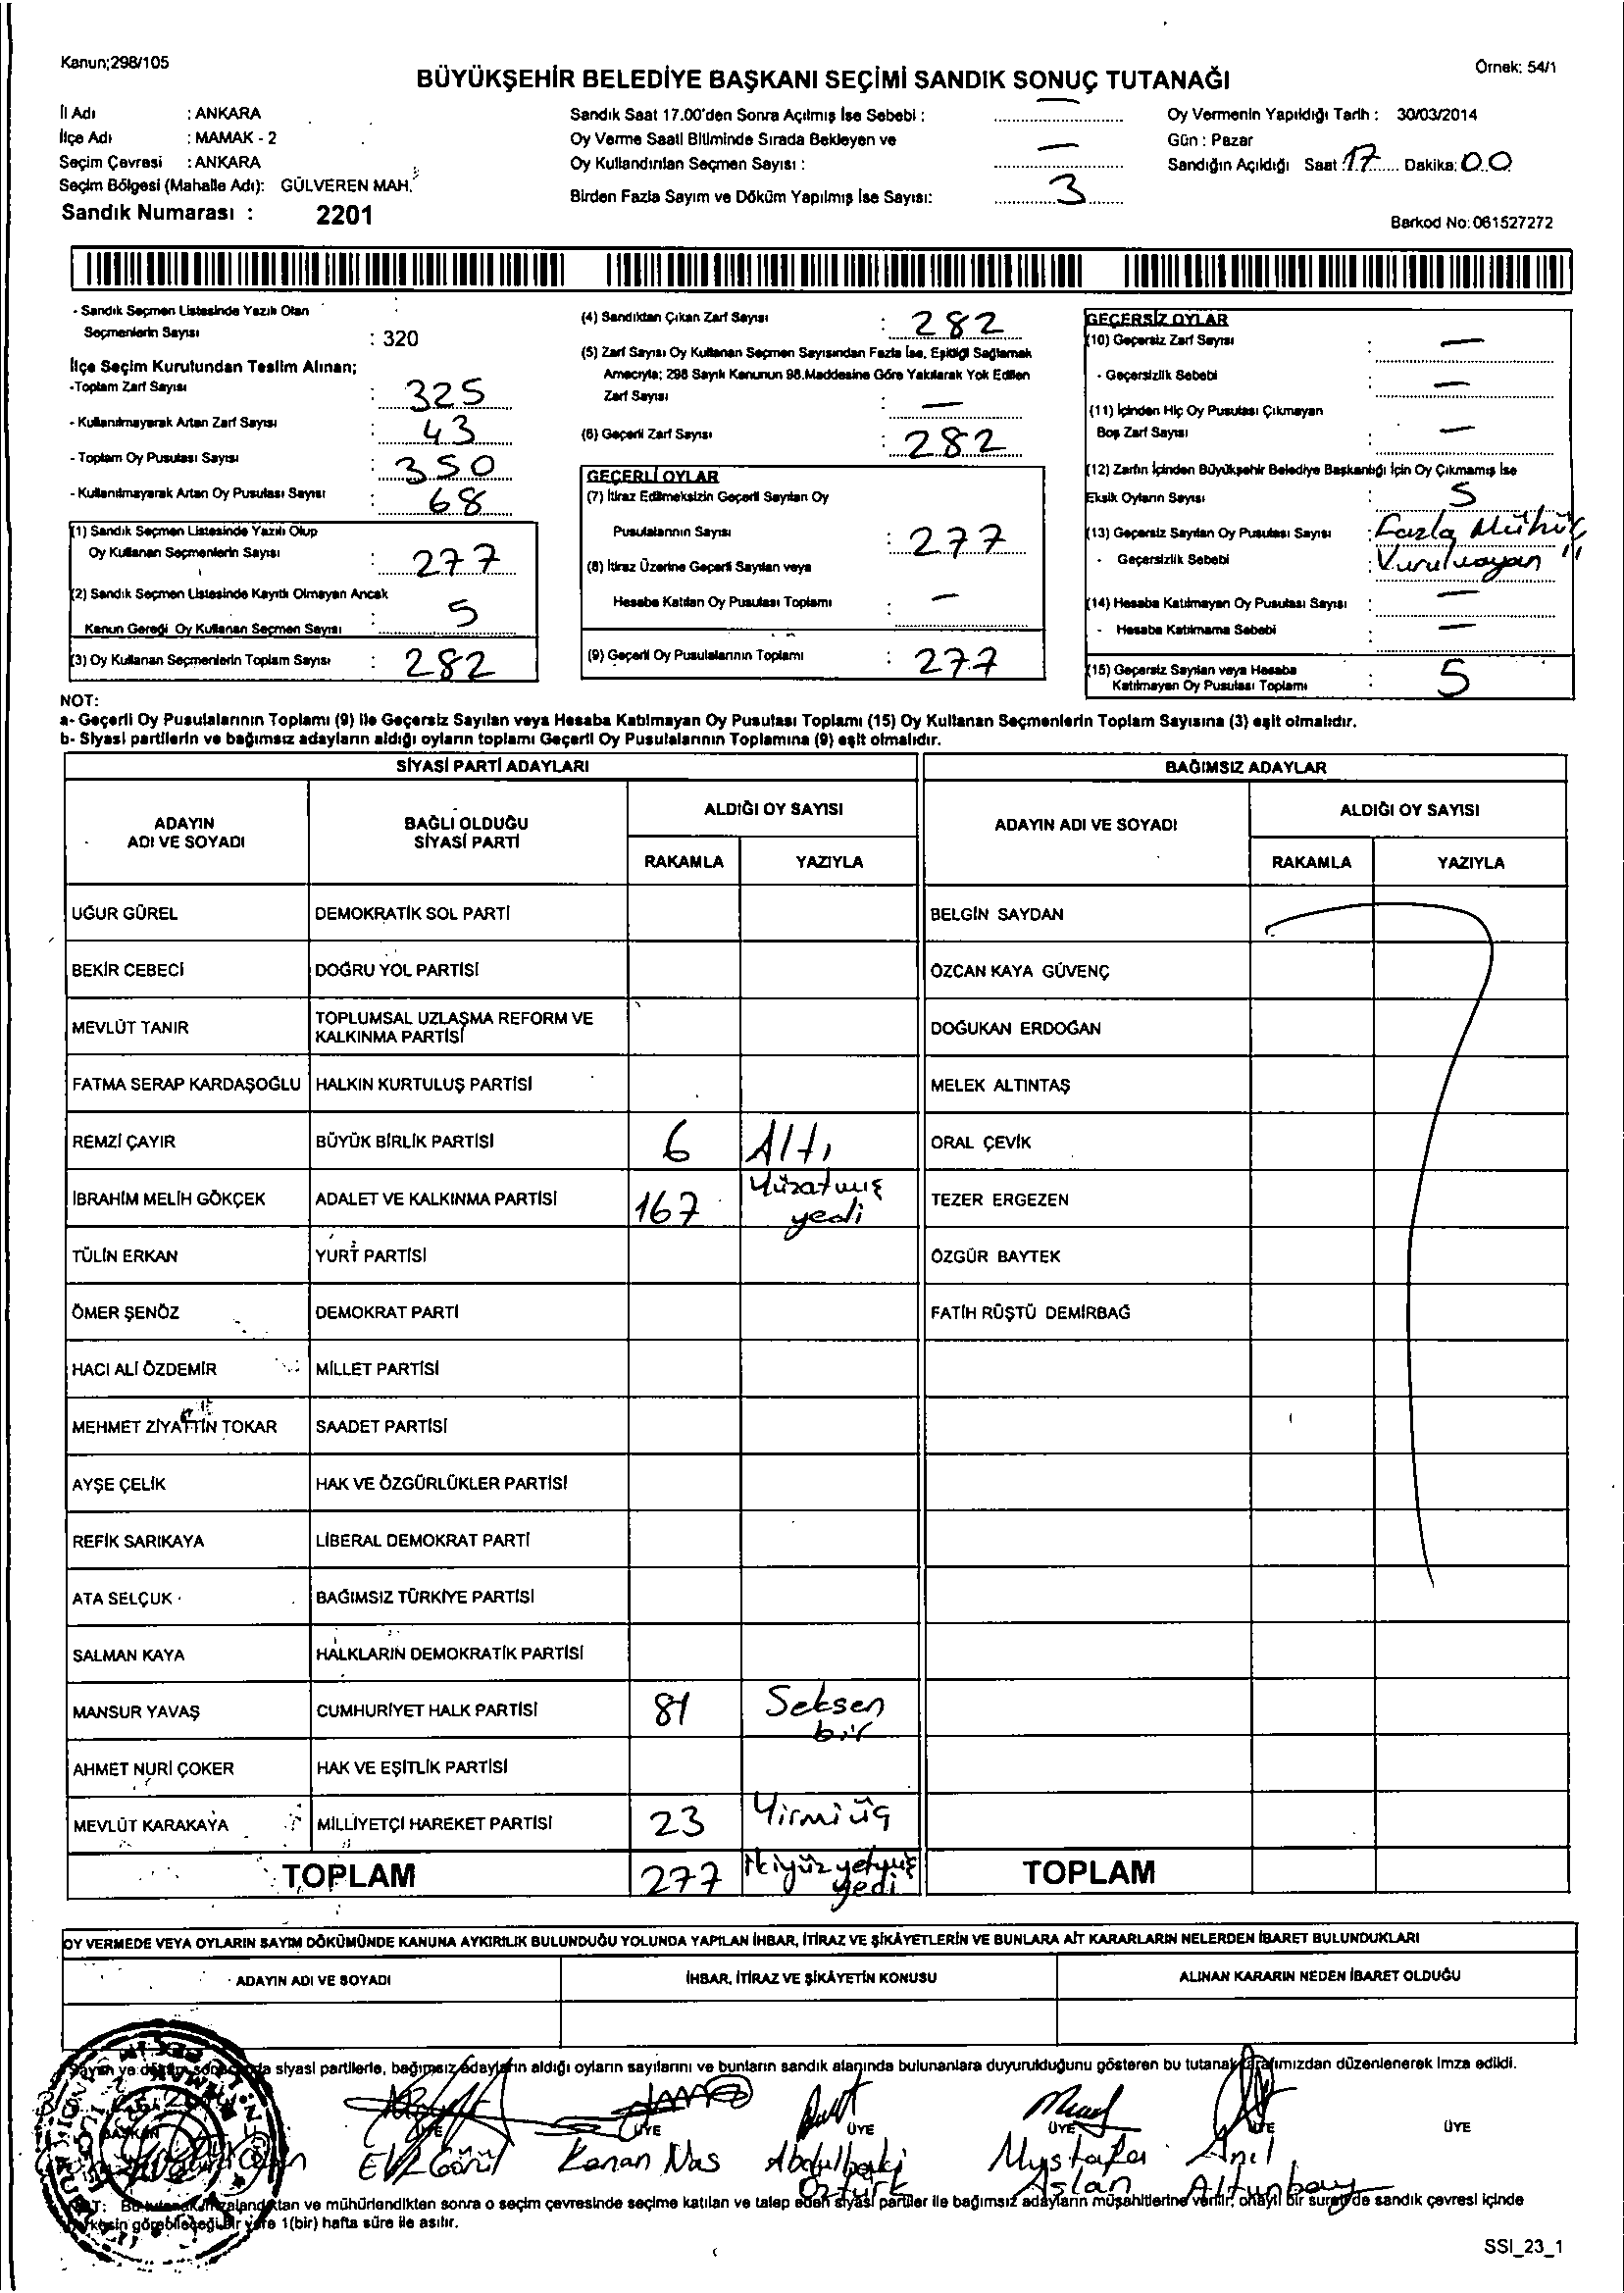 Kanun;298/105
Örnek: 54/1
BÜYÜKŞEHİR BELEDİYE BAŞKANI SEÇİMİ SANDIK SONUÇ TUTANAĞI
İl Adı : ANKARA
İlçe Adı : MAMAK - 2
Seçim Çevresi : ANKARA
Seçim Bölgesi (Mahalle Adı): GÜLVEREN MAH.
Sandık Numarası : 2201
Sandık Saat 17.00'den Sonra Açılmış İse Sebebi : —
Oy Verme Saati Bitiminde Sırada Bekleyen ve
Oy Kullandırılan Seçmen Sayısı : —
Birden Fazla Sayım ve Döküm Yapılmış İse Sayısı: 3
Oy Vermenin Yapıldığı Tarih : 30/03/2014
Gün : Pazar
Sandığın Açıldığı Saat 17 Dakika: 00
Barkod No: 061527272
- Sandık Seçmen Listesinde Yazılı Olan
Seçmenlerin Sayısı : 320
İlçe Seçim Kurulundan Teslim Alınan;
-Toplam Zarf Sayısı : 325
- Kullanılmayarak Artan Zarf Sayısı : 43
- Toplam Oy Pusulası Sayısı : 350
- Kullanılmayarak Artan Oy Pusulası Sayısı : 68
(1) Sandık Seçmen Listesinde Yazılı Olup
Oy Kullanan Seçmenlerin Sayısı : 277
(2) Sandık Seçmen Listesinde Kayıtlı Olmayan Ancak
Kanun Gereği Oy Kullanan Seçmen Sayısı : 5
(3) Oy Kullanan Seçmenlerin Toplam Sayısı : 282
(4) Sandıktan Çıkan Zarf Sayısı : 282
(5) Zarf Sayısı Oy Kullanan Seçmen Sayısından Fazla İse, Eşitliği Sağlamak
Amacıyla; 298 Sayılı Kanunun 98.Maddesine Göre Yakılarak Yok Edilen
Zarf Sayısı : —
(6) Geçerli Zarf Sayısı : 282
GEÇERLİ OYLAR
(7) İtiraz Edilmeksizin Geçerli Sayılan Oy
Pusulalarının Sayısı : 277
(8) İtiraz Üzerine Geçerli Sayılan veya
Hesaba Katılan Oy Pusulası Toplamı : —
(9) Geçerli Oy Pusulalarının Toplamı : 277
GEÇERSİZ OYLAR
(10) Geçersiz Zarf Sayısı : —
- Geçersizlik Sebebi : —
(11) İçinden Hiç Oy Pusulası Çıkmayan
Boş Zarf Sayısı : —
(12) Zarfın İçinden Büyükşehir Belediye Başkanlığı İçin Oy Çıkmamış İse
Eksik Oyların Sayısı : 5
(13) Geçersiz Sayılan Oy Pusulası Sayısı : Fazla Mühür
- Geçersizlik Sebebi : Vurulmayan "
(14) Hesaba Katılmayan Oy Pusulası Sayısı : —
- Hesaba Katılmama Sebebi : —
(15) Geçersiz Sayılan veya Hesaba
Katılmayan Oy Pusulası Toplamı : 5
NOT:
a- Geçerli Oy Pusulalarının Toplamı (9) ile Geçersiz Sayılan veya Hesaba Katılmayan Oy Pusulası Toplamı (15) Oy Kullanan Seçmenlerin Toplam Sayısına (3) eşit olmalıdır.
b- Siyasi partilerin ve bağımsız adayların aldığı oyların toplamı Geçerli Oy Pusulalarının Toplamına (9) eşit olmalıdır.
SİYASİ PARTİ ADAYLARI
ADAYIN
ADI VE SOYADI
BAĞLI OLDUĞU
SİYASİ PARTİ
ALDIĞI OY SAYISI
RAKAMLA YAZIYLA
UĞUR GÜREL DEMOKRATİK SOL PARTİ
BEKİR CEBECİ DOĞRU YOL PARTİSİ
MEVLÜT TANIR TOPLUMSAL UZLAŞMA REFORM VE
KALKINMA PARTİSİ
FATMA SERAP KARDAŞOĞLU HALKIN KURTULUŞ PARTİSİ
REMZİ ÇAYIR BÜYÜK BİRLİK PARTİSİ 6 Altı
İBRAHİM MELİH GÖKÇEK ADALET VE KALKINMA PARTİSİ 167 Yüzatmış
yedi
TÜLİN ERKAN YURT PARTİSİ
ÖMER ŞENÖZ DEMOKRAT PARTİ
HACI ALİ ÖZDEMİR MİLLET PARTİSİ
MEHMET ZİYATTİN TOKAR SAADET PARTİSİ
AYŞE ÇELİK HAK VE ÖZGÜRLÜKLER PARTİSİ
REFİK SARIKAYA LİBERAL DEMOKRAT PARTİ
ATA SELÇUK BAĞIMSIZ TÜRKİYE PARTİSİ
SALMAN KAYA HALKLARIN DEMOKRATİK PARTİSİ
MANSUR YAVAŞ CUMHURİYET HALK PARTİSİ 81 Seksen
bir
AHMET NURİ ÇOKER HAK VE EŞİTLİK PARTİSİ
MEVLÜT KARAKAYA MİLLİYETÇİ HAREKET PARTİSİ 23 Yirmi üç
TOPLAM 277 ikiyüz yetmiş
yedi
BAĞIMSIZ ADAYLAR
ADAYIN ADI VE SOYADI
ALDIĞI OY SAYISI
RAKAMLA YAZIYLA
BELGİN SAYDAN
ÖZCAN KAYA GÜVENÇ
DOĞUKAN ERDOĞAN
MELEK ALTINTAŞ
ORAL ÇEVİK
TEZER ERGEZEN
ÖZGÜR BAYTEK
FATİH RÜŞTÜ DEMİRBAĞ
TOPLAM
OY VERMEDE VEYA OYLARIN SAYIM DÖKÜMÜNDE KANUNA AYKIRILIK BULUNDUĞU YOLUNDA YAPILAN İHBAR, İTİRAZ VE ŞİKÂYETLERİN VE BUNLARA AİT KARARLARIN NELERDEN İBARET BULUNDUKLARI
ADAYIN ADI VE SOYADI İHBAR, İTİRAZ VE ŞİKÂYETİN KONUSU ALINAN KARARIN NEDEN İBARET OLDUĞU
siyasi partilerle, bağımsız adayların aldığı oyların sayılarını ve bunların sandık alanında bulunanlara duyurulduğunu gösteren bu tutanak tarafımızdan düzenlenerek imza edildi.
BAŞKAN ÜYE ÜYE ÜYE ÜYE ÜYE ÜYE
Kenan Nas Abdulbaki Mustafa Anıl
Öztürk Aslan Altunbay
NOT: Bu tutanak imzalandıktan ve mühürlendikten sonra o seçim çevresinde seçime katılan ve talep eden siyasi partiler ile bağımsız adayların müşahitlerine verilir, onaylı bir suretyde sandık çevresi içinde
herkesin görebileceği bir yere 1(bir) hafta süre ile asılır.
SSI_23_1